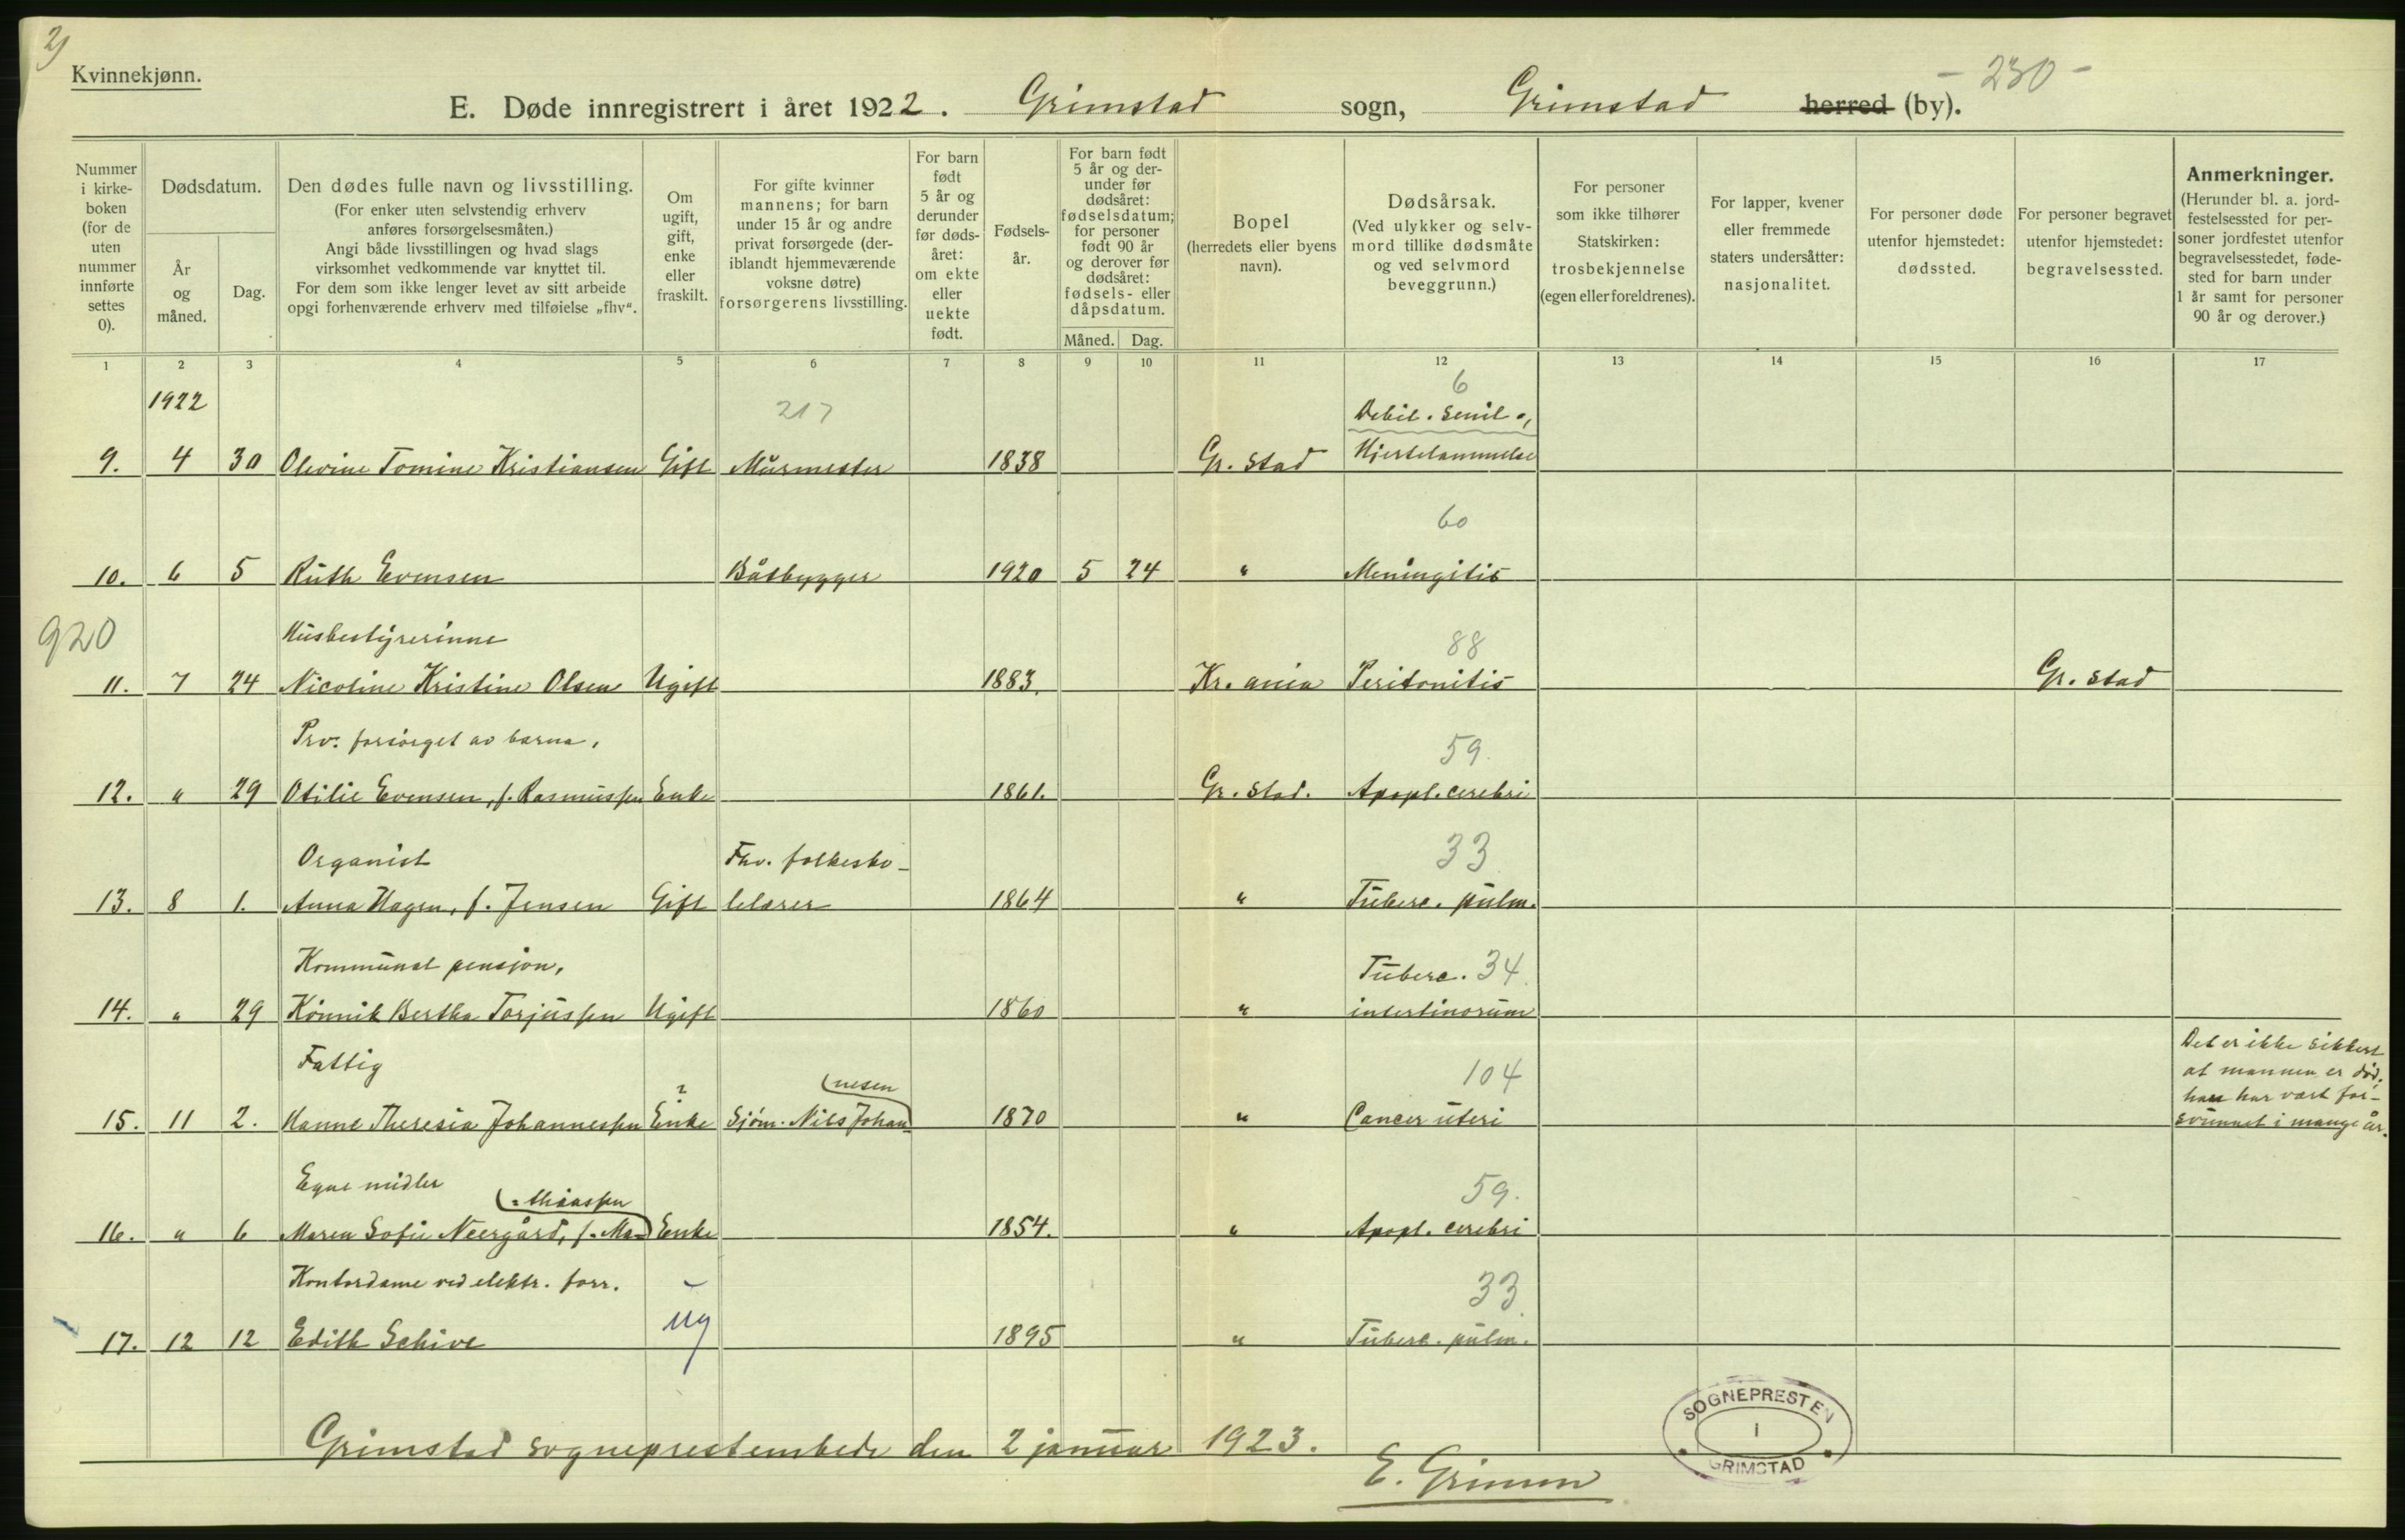 2)
Kvinnekjønn.
- 230 -
E. Døde innregistrert i året 1922. Grimstad sogn, Grimstad herred (by).
Nummer i kirkeboken (for de uten nummer innførte settes 0).
Dødsdatum.
År og måned.
Dag.
Den dødes fulle navn og livsstilling.
(For enker uten selvstendig erhverv
anføres forsørgelsesmåten.)
Angi både livsstillingen og hvad slags
virksomhet vedkommende var knyttet til.
For dem som ikke lenger levet av sitt arbeide
opgi forhenværende erhverv med tilføielse „fhv“.
Om ugift, gift, enke eller fraskilt.
For gifte kvinner
mannens; for barn
under 15 år og andre
privat forsørgede (der-
iblandt hjemmeværende
voksne døtre)
forsørgerens livsstilling.
For barn født 5 år og derunder før døds-året: om ekte eller uekte født.
Fødsels-år.
For barn født
5 år og der-
under før
dødsåret:
fødselsdatum;
for personer
født 90 år
og derover før
dødsåret:
fødsels- eller
dåpsdatum.
Måned. Dag.
Bopel
(herredets eller byens
navn).
Dødsårsak.
(Ved ulykker og selv-
mord tillike dødsmåte
og ved selvmord
beveggrunn.)
For personer
som ikke tilhører
Statskirken:
trosbekjennelse
(egen eller foreldrenes).
For lapper, kvener
eller fremmede
staters undersåtter:
nasjonalitet.
For personer døde
utenfor hjemstedet:
dødssted.
For personer begravet
utenfor hjemstedet:
begravelsessted.
Anmerkninger.
(Herunder bl. a. jord-
festelsessted for per-
soner jordfestet utenfor
begravelsesstedet, føde-
sted for barn under
1 år samt for personer
90 år og derover.)
1 2 3 4 5 6 7 8 9 10 11 12 13 14 15 16 17
1922 217 6
Debil. senil.,
9. 4 30 Olevine Tomine Kristiansen Gift Murmester 1838 Gr.stad Hjertelammelse
60
10. 6 5 Ruth Evensen Båtbygger 1920 5 24 " Meningitis
920 Husbestyrerinne 88
11. 7 24 Nicoline Kristine Olsen Ugift 1883. Kr.ania Peritonitis Gr.stad
Prv. forsørget av barna, 59.
12. " 29 Otilie Evensen, f. Rasmussen Enke 1861. Gr.stad. Apopl. cerebri
Organist Fhv. folkesko- 33
13. 8 1. Anna Hagen, f. Jensen Gift lelærer 1864 " Tuberc. pulm.
Kommunal pensjon, Tuberc. 34
14. " 29 Kønnik Bertha Torjussen Ugift 1860 " intestinorum
Fattig ? nesen 104
15. 11 2. Hanne Theresia Johannessen Enke Sjøm. Nils Johan- 1870 " Cancer uteri
Det er ikke sikkert
at mannen er død;
han har vært for-
svunnet i mange år.
Egne midler =thiassen 59.
16. " 6 Maren Sofie Neergård, f. Ma= Enke 1854. " Apopl. cerebri
Kontordame ved elektr. forr. 33
17. 12 12 Edith Schive ug 1895 " Tuberc. pulm.
Grimstad sogneprestembede den 2 januar 1923.
E. Grimm
SOGNEPRESTEN I GRIMSTAD